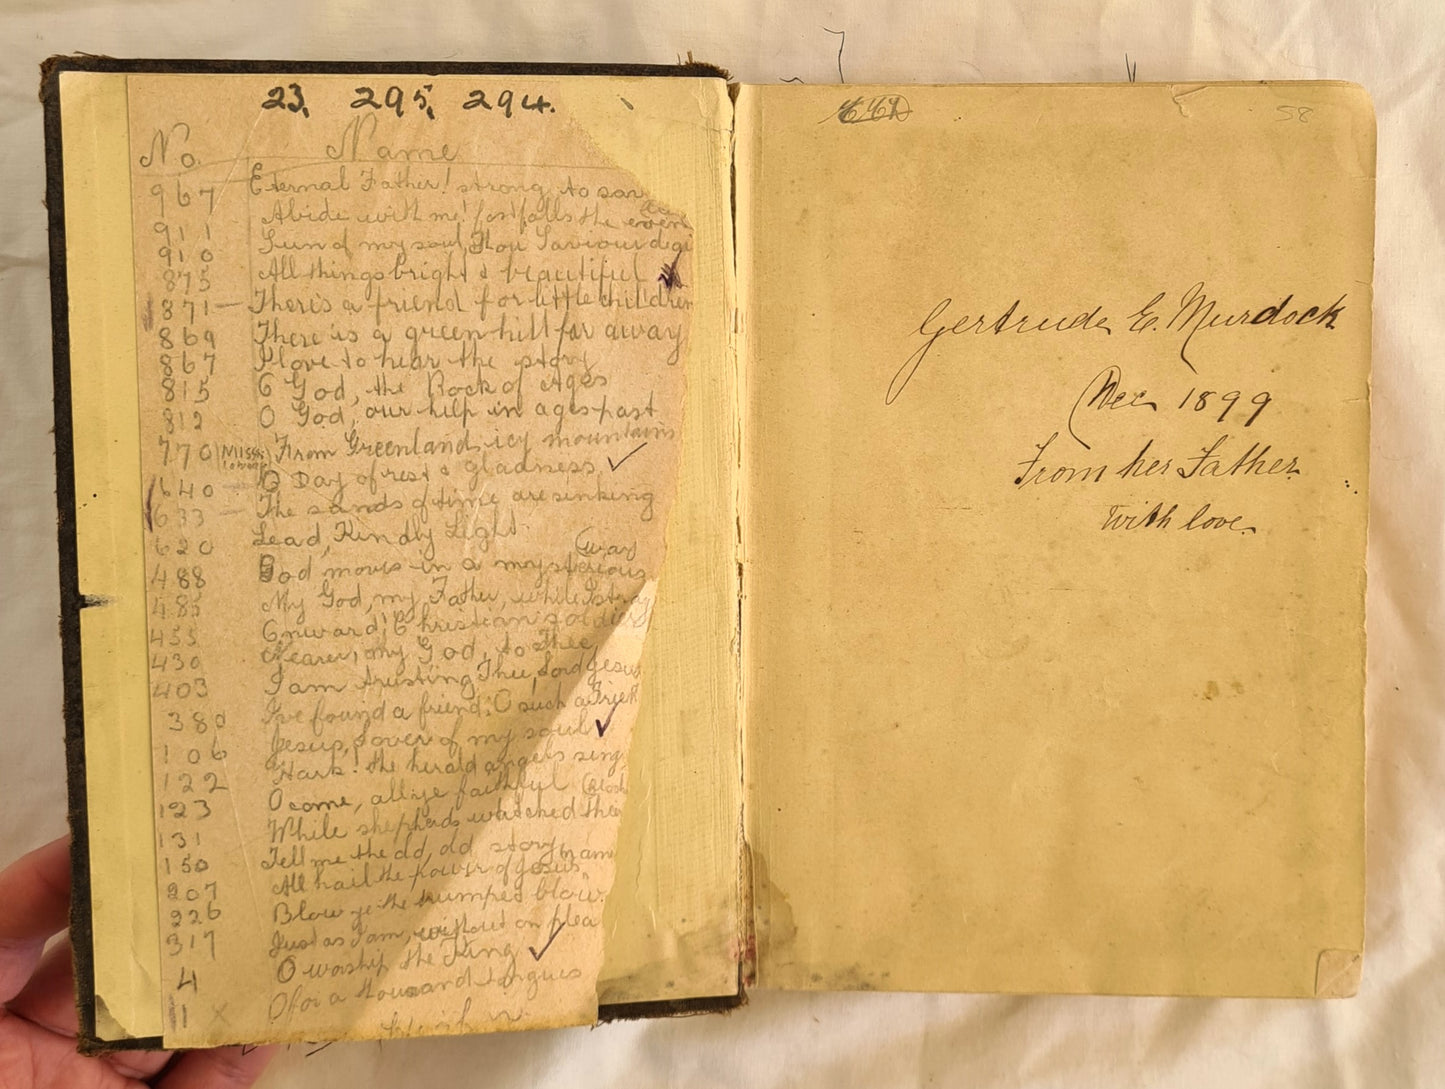 23, 295, 294.
No. Name
967 Eternal Father! strong to sav
911 Abide with me! fast falls the even
910 Sun of my soul, Thou Saviour dear
875 All things bright & beautiful
871 — There's a friend for little children
869 There is a green hill far away
867 I love to hear the story
815 O God, the Rock of Ages
812 O God, our help in ages past
770 From Greenland's icy mountains
640 — O Day of rest & gladness ✓
633 — The sands of time are sinking
620 Lead, Kindly Light
(way
488 God moves in a mysterious
485 My God, my Father, while I stray
455 Onward! Christian soldiers
430 Nearer, my God, to Thee
403 I am trusting Thee, Lord Jesus
380 I've found a friend; O such a Frien
106 Jesus, Lover of my soul ✓
122 Hark! the herald angels sing
123 O come, all ye faithful
131 While shepherds watched their
150 Tell me the old, old story
207 All hail the power of Jesus' name
226 Blow ye the trumpet blow
317 Just as I am, without on plea
4 O worship the King ✓
1 x O for a thousand tongues
58
Gertrude E. Murdock
Dec 1899
From her Father
With love